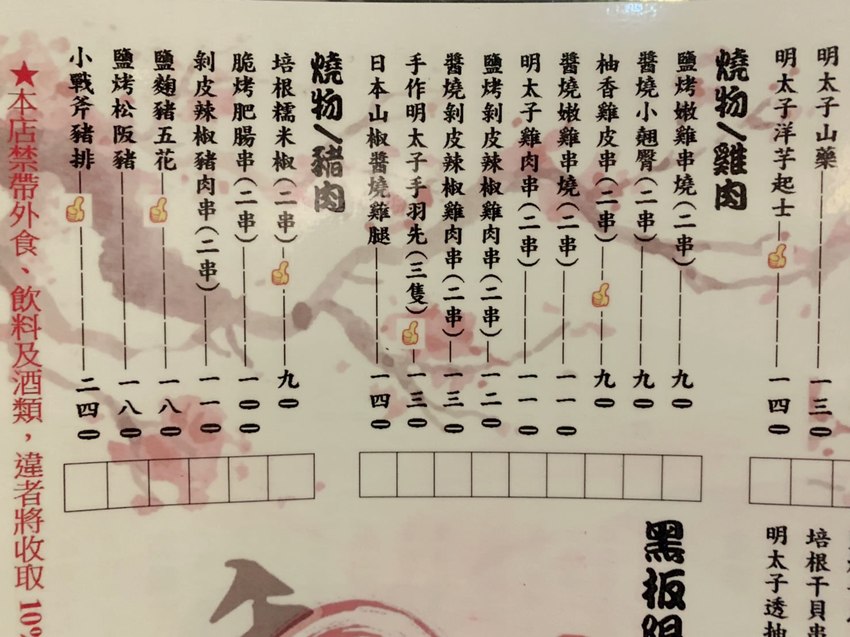 明太子山藥 一三〇
明太子洋芋起士 一四〇
燒物/雞肉
鹽烤嫩雞串燒(二串) 九〇
醬燒小翹臀(二串) 九〇
柚香雞皮串(二串) 九〇
醬燒嫩雞串燒(二串) 一一〇
明太子雞肉串(二串) 一一〇
鹽烤剝皮辣椒雞肉串(二串) 一二〇
醬燒剝皮辣椒雞肉串(二串) 一三〇
手作明太子手羽先(三隻) 一三〇
日本山椒醬燒雞腿 一四〇
燒物/豬肉
培根糯米椒(二串) 九〇
脆烤肥腸串(二串) 一〇〇
剝皮辣椒豬肉串(二串) 一一〇
鹽麴豬五花 一八〇
鹽烤松阪豬 一八〇
小戰斧豬排 二四〇
★本店禁帶外食、飲料及酒類，違者將收取 10%
培根干貝串
明太子透抽
黑板限